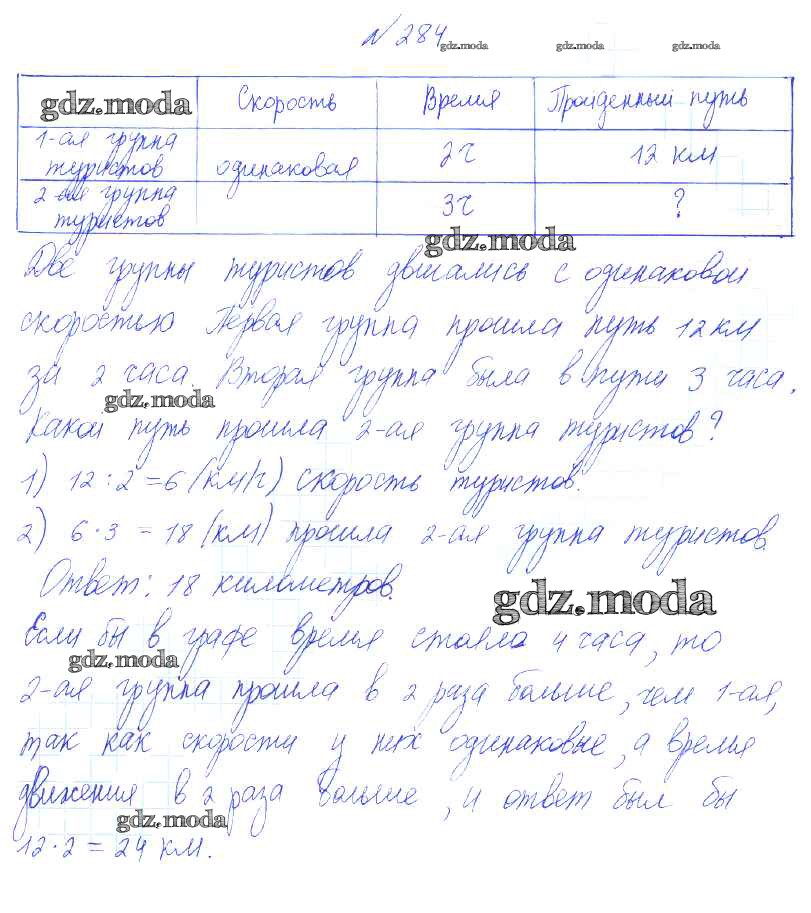 № 284
gdz.moda gdz.moda gdz.moda
gdz.moda Скорость Время Пройденный путь
1-ая группа
туристов одинаковая 2ч 12 км
2-ая группа
туристов 3ч ?
gdz.moda
Две группы туристов двигались с одинаковой
скоростью Первая группа прошла путь 12 км
за 2 часа. Вторая группа была в пути 3 часа.
gdz.moda
Какой путь прошла 2-ая группа туристов?
1) 12 : 2 = 6 (км/ч) скорость туристов.
2) 6 · 3 = 18 (км) прошла 2-ая группа туристов.
Ответ: 18 километров.
gdz.moda
Если бы в графе время стояло 4 часа, то
gdz.moda
2-ая группа прошла в 2 раза больше, чем 1-ая,
так как скорости у них одинаковые, а время
движения в 2 раза больше, и ответ был бы
gdz.moda
12 · 2 = 24 км.